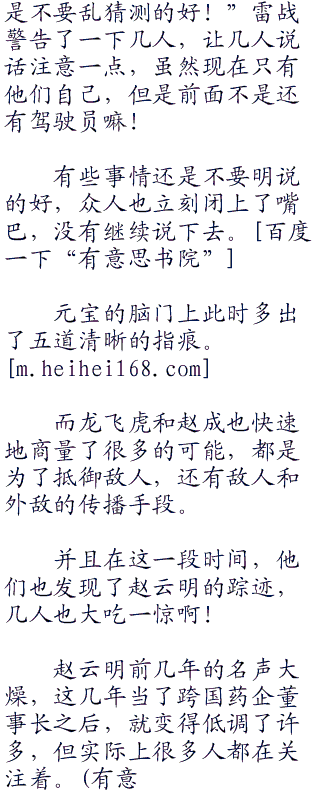 是不要乱猜测的好！”雷战
警告了一下几人，让几人说
话注意一点，虽然现在只有
他们自己，但是前面不是还
有驾驶员嘛！
有些事情还是不要明说
的好，众人也立刻闭上了嘴
巴，没有继续说下去。[百度
一下“有意思书院”]
元宝的脑门上此时多出
了五道清晰的指痕。
[m.heihei168.com]
而龙飞虎和赵成也快速
地商量了很多的可能，都是
为了抵御敌人，还有敌人和
外敌的传播手段。
并且在这一段时间，他
们也发现了赵云明的踪迹，
几人也大吃一惊啊！
赵云明前几年的名声大
燥，这几年当了跨国药企董
事长之后，就变得低调了许
多，但实际上很多人都在关
注着。(有意